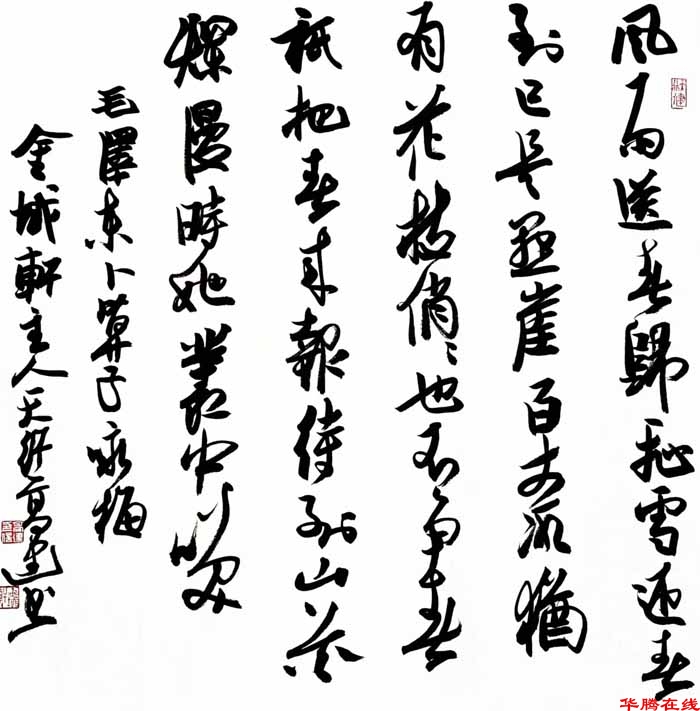 風雨送春歸飛雪迎春
到已是懸崖百丈冰猶
有花枝俏〻也不爭春
祇把春來報待到山花
爛漫時她叢中笑
毛澤東卜算子咏梅
金城軒主人天津高建書
华腾在线